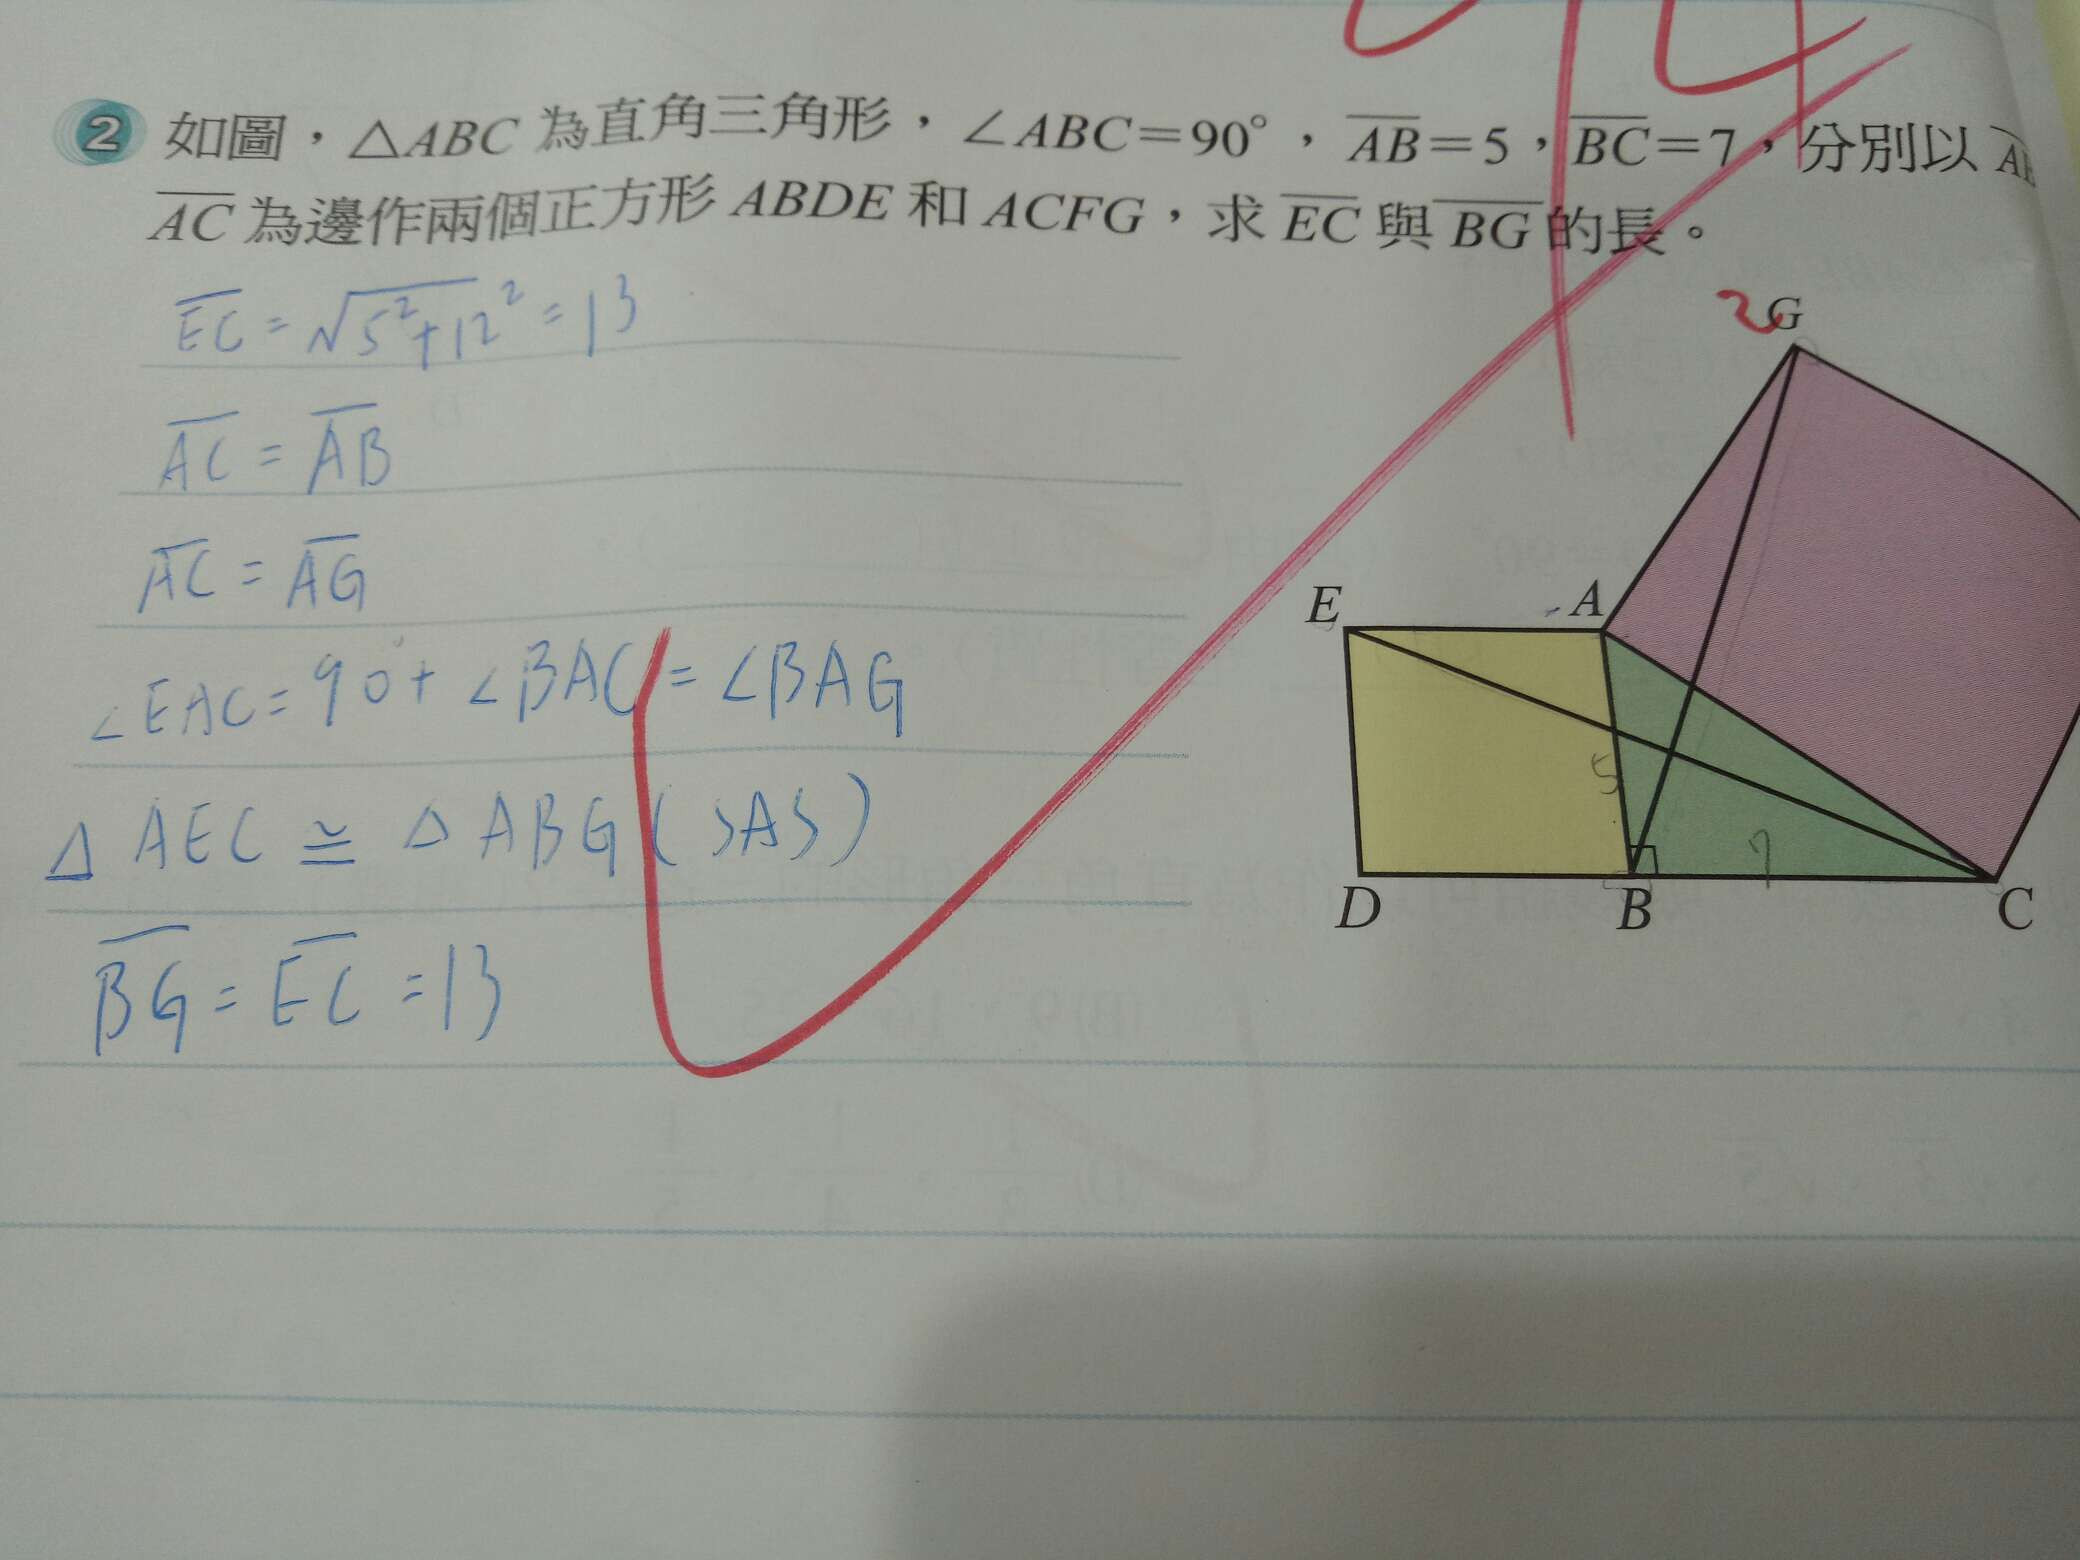 2 如圖，△ABC 為直角三角形，∠ABC=90°，AB=5，BC=7，分別以
AC 為邊作兩個正方形 ABDE 和 ACFG，求 EC 與 BG 的長。
EC = √5²+12² = 13
AC = AB
AC = AG
∠EAC = 90 + ∠BAC = ∠BAG
△ AEC ≅ △ ABG (SAS)
BG = EC = 13
G
E
A
5
7
D
B
C